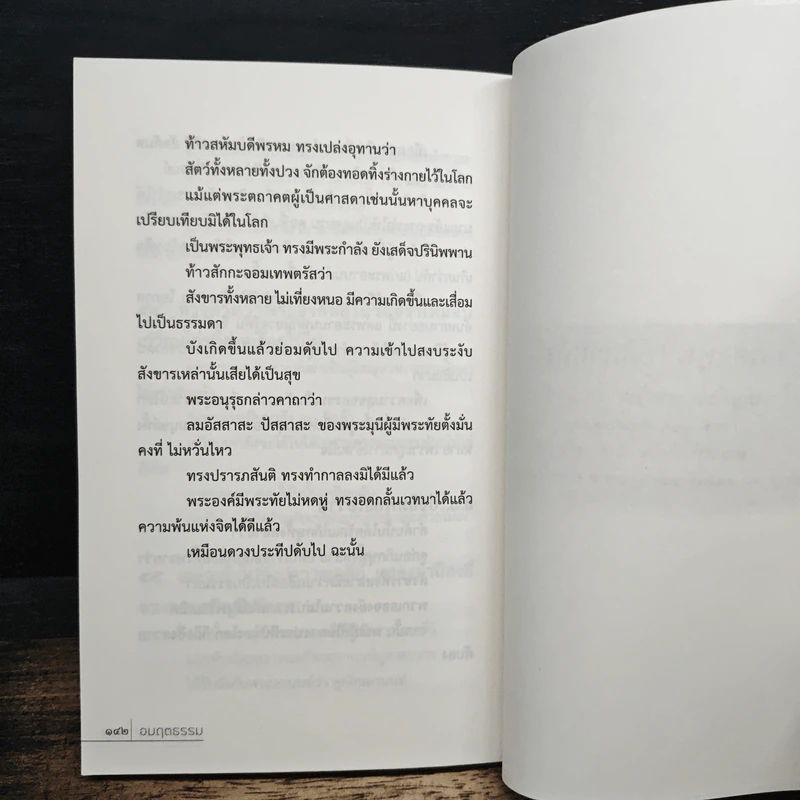 ท้าวสหัมบดีพรหม ทรงเปล่งอุทานว่า
สัตว์ทั้งหลายทั้งปวง จักต้องทอดทิ้งร่างกายไว้ในโลก
แม้แต่พระตถาคตผู้เป็นศาสดาเช่นนั้นหาบุคคลจะ
เปรียบเทียบมิได้ในโลก
เป็นพระพุทธเจ้า ทรงมีพระกำลัง ยังเสด็จปรินิพพาน
ท้าวสักกะจอมเทพตรัสว่า
สังขารทั้งหลาย ไม่เที่ยงหนอ มีความเกิดขึ้นและเสื่อม
ไปเป็นธรรมดา
บังเกิดขึ้นแล้วย่อมดับไป ความเข้าไปสงบระงับ
สังขารเหล่านั้นเสียได้เป็นสุข
พระอนุรุธกล่าวคาถาว่า
ลมอัสสาสะ ปัสสาสะ ของพระมุนีผู้มีพระทัยตั้งมั่น
คงที่ ไม่หวั่นไหว
ทรงปรารภสันติ ทรงทำกาลลงมิได้มีแล้ว
พระองค์มีพระทัยไม่หดหู่ ทรงอดกลั้นเวทนาได้แล้ว
ความพ้นแห่งจิตได้ดีแล้ว
เหมือนดวงประทีปดับไป ฉะนั้น
๑๔๒ อมฤตธรรม